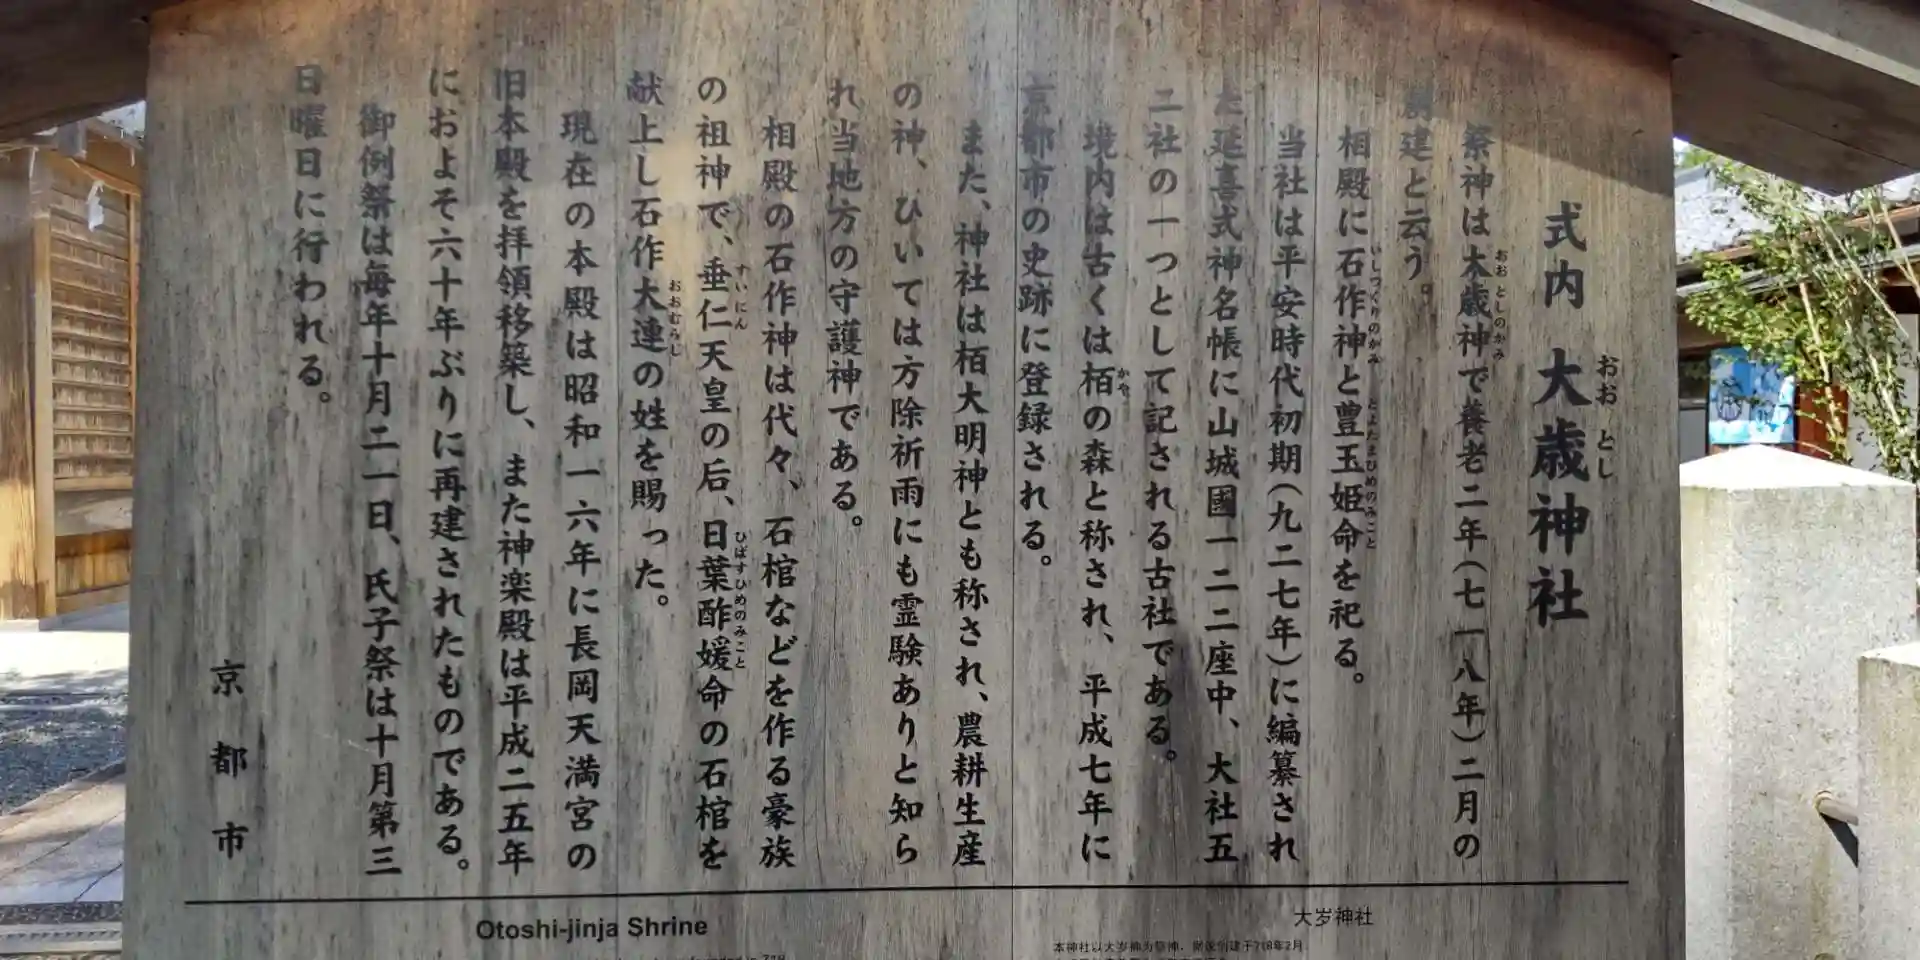 式内 大歳神社
おお とし
祭神は大歳神で養老二年(七一八年)二月の
おお としのかみ
創建と云う。
相殿に石作神と豊玉姫命を祀る。
いしつくりのかみ
とよたまひめのみこと
当社は平安時代初期(九二七年)に編纂され
た延喜式神名帳に山城國一二二座中、大社五
二社の一つとして記される古社である。
境内は古くは栢の森と称され、平成七年に
かや
京都市の史跡に登録される。
また、神社は栢大明神とも称され、農耕生産
の神、ひいては方除祈雨にも霊験ありと知ら
れ当地方の守護神である。
相殿の石作神は代々、石棺などを作る豪族
の祖神で、垂仁天皇の后、日葉酢媛命の石棺を
すいにん
ひばすひめのみこと
献上し石作大連の姓を賜った。
おおむらじ
現在の本殿は昭和一六年に長岡天満宮の
旧本殿を拝領移築し、また神楽殿は平成二五年
におよそ六十年ぶりに再建されたものである。
御例祭は毎年十月二一日、氏子祭は十月第三
日曜日に行われる。
京都市
Otoshi-jinja Shrine
大岁神社
本神社以大岁神为祭神，据说创建于718年2月